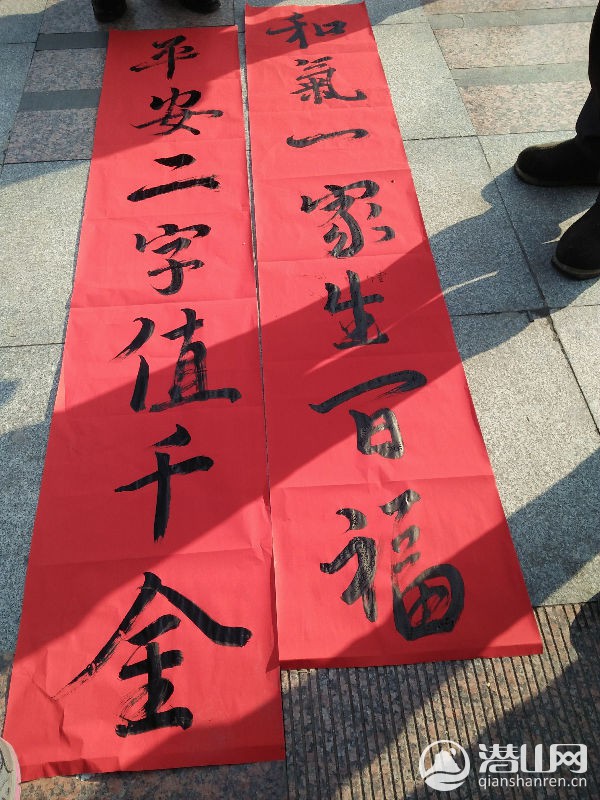 和氣一家生百福
平安二字值千金
潜山网
qianshanren.cn